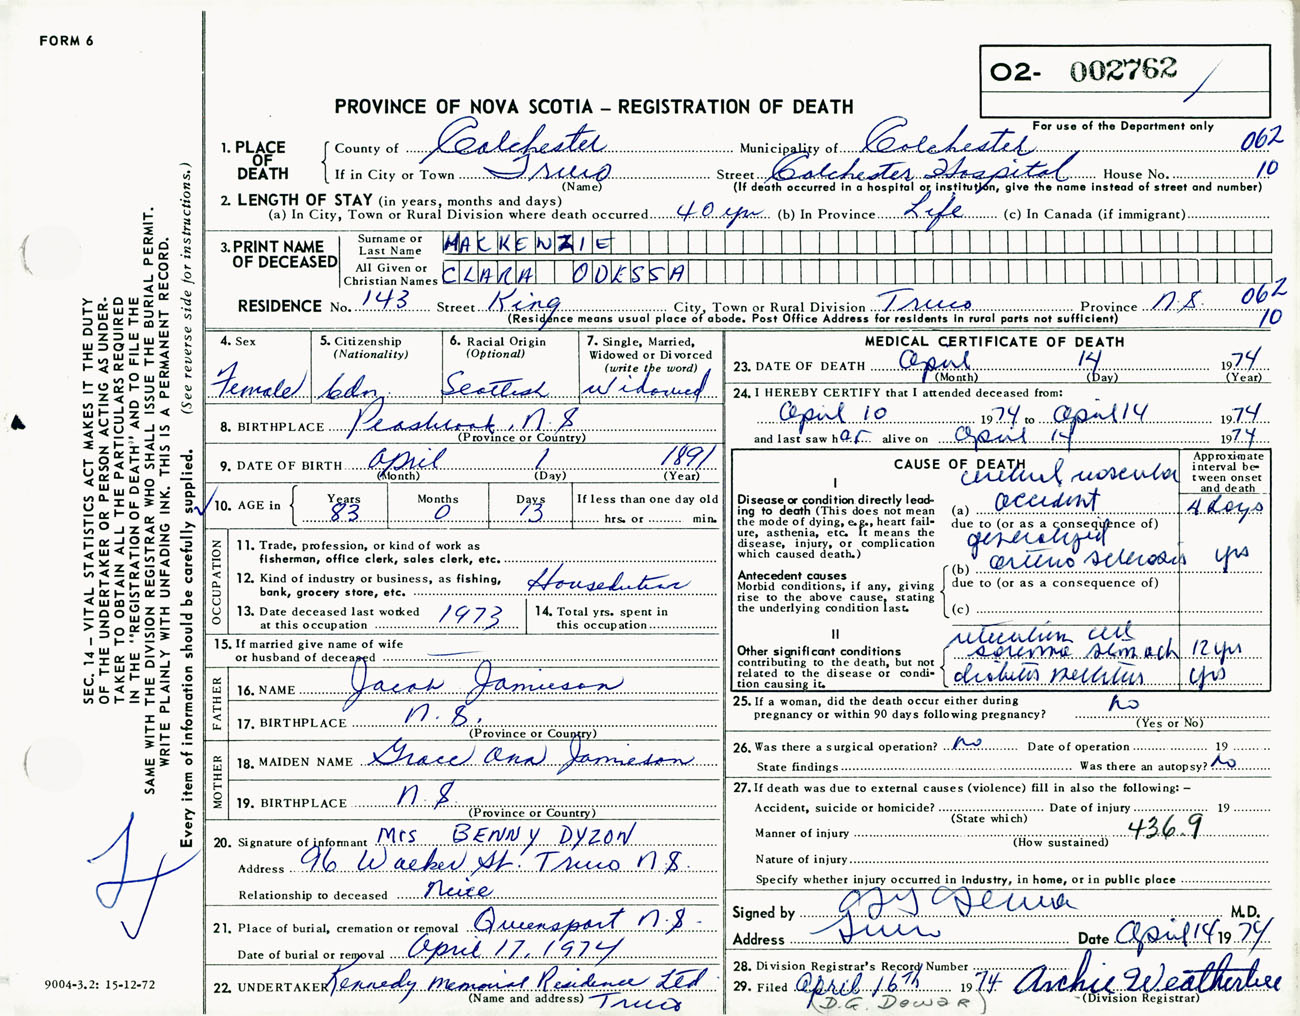 FORM 6
O2- 002762
PROVINCE OF NOVA SCOTIA – REGISTRATION OF DEATH
For use of the Department only
1. PLACE OF DEATH
County of Colchester Municipality of Colchester 062
If in City or Town Truro Street Colchester Hospital House No. 10
(Name) (If death occurred in a hospital or institution, give the name instead of street and number)
2. LENGTH OF STAY (in years, months and days)
(a) In City, Town or Rural Division where death occurred 40 yrs (b) In Province Life (c) In Canada (if immigrant)
3. PRINT NAME OF DECEASED
Surname or Last Name MACKENZIE
All Given or Christian Names CLARA ODESSA
RESIDENCE No. 143 Street King City, Town or Rural Division Truro Province N.S. 062
(Residence means usual place of abode. Post Office Address for residents in rural parts not sufficient) 10
4. Sex
Female
5. Citizenship (Nationality)
Cdn.
6. Racial Origin (Optional)
Scottish
7. Single, Married, Widowed or Divorced (write the word)
Widowed
8. BIRTHPLACE Peasbrook, N.S
(Province or Country)
9. DATE OF BIRTH April 1 1891
(Month) (Day) (Year)
10. AGE in
Years 83
Months 0
Days 13
If less than one day old
hrs. or min.
OCCUPATION
11. Trade, profession, or kind of work as fisherman, office clerk, sales clerk, etc.
12. Kind of industry or business, as fishing, bank, grocery store, etc. Houseduties
13. Date deceased last worked at this occupation 1973
14. Total yrs. spent in this occupation
15. If married give name of wife or husband of deceased —
FATHER
16. NAME Jacob Jamieson
17. BIRTHPLACE N.S.
(Province or Country)
MOTHER
18. MAIDEN NAME Grace Ann Jamieson
19. BIRTHPLACE N.S.
(Province or Country)
20. Signature of informant Mrs BENNY DYZON
Address 96 Walker St. Truro N.S.
Relationship to deceased Neice
21. Place of burial, cremation or removal Queensport N.S.
Date of burial or removal April 17, 1974
22. UNDERTAKER Kennedy Memorial Residence Ltd
(Name and address) Truro
MEDICAL CERTIFICATE OF DEATH
23. DATE OF DEATH April 14 1974
(Month) (Day) (Year)
24. I HEREBY CERTIFY that I attended deceased from:
April 10 1974 to April 14 1974
and last saw her alive on April 14 1974
CAUSE OF DEATH
Approximate interval between onset and death
I
Disease or condition directly leading to death (This does not mean the mode of dying, e.g., heart failure, asthenia, etc. It means the disease, injury, or complication which caused death.)
cerebral vascular
(a) accident 4 days
due to (or as a consequence of)
Antecedent causes
Morbid conditions, if any, giving rise to the above cause, stating the underlying condition last.
generalized
(b) arterio sclerosis yrs
due to (or as a consequence of)
(c)
II
Other significant conditions
contributing to the death, but not related to the disease or condition causing it.
reticulum cell
sarcoma stomach 12 yrs
diabetes mellitus yrs
25. If a woman, did the death occur either during pregnancy or within 90 days following pregnancy? no
(Yes or No)
26. Was there a surgical operation? no Date of operation 19
State findings Was there an autopsy? no
27. If death was due to external causes (violence) fill in also the following: –
Accident, suicide or homicide? Date of injury 19
(State which)
Manner of injury 436.9
(How sustained)
Nature of injury
Specify whether injury occurred in Industry, in home, or in public place
Signed by M.D.
Address Truro Date April 14 1974
28. Division Registrar's Record Number
29. Filed April 16th 1974 Archie Weatherbee
(D.G. Dewar) (Division Registrar)
SEC. 14 – VITAL STATISTICS ACT MAKES IT THE DUTY
OF THE UNDERTAKER OR PERSON ACTING AS UNDER-
TAKER TO OBTAIN ALL THE PARTICULARS REQUIRED
IN THE "REGISTRATION OF DEATH" AND TO FILE THE
SAME WITH THE DIVISION REGISTRAR WHO SHALL ISSUE THE BURIAL PERMIT.
WRITE PLAINLY WITH UNFADING INK. THIS IS A PERMANENT RECORD.
Every item of information should be carefully supplied. (See reverse side for instructions.)
9004-3.2: 15-12-72